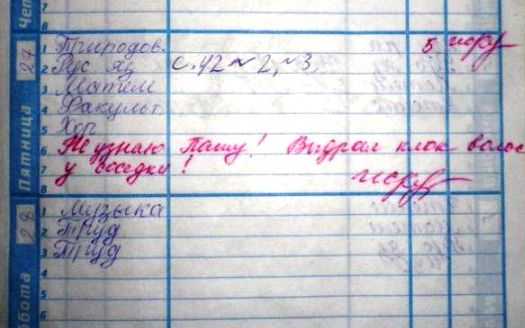 Че
7
8
27
Пятница
1 Природов. 5
2 Рус яз с. 42 № 2, № 3.
3 Матем
4 Факульт.
5 Хор
6 Не узнаю Пашу! Выдрал клок волос
7 у соседки!
8
28
бота
1 Музыка
2 Труд
3 Труд
4
5
6
7